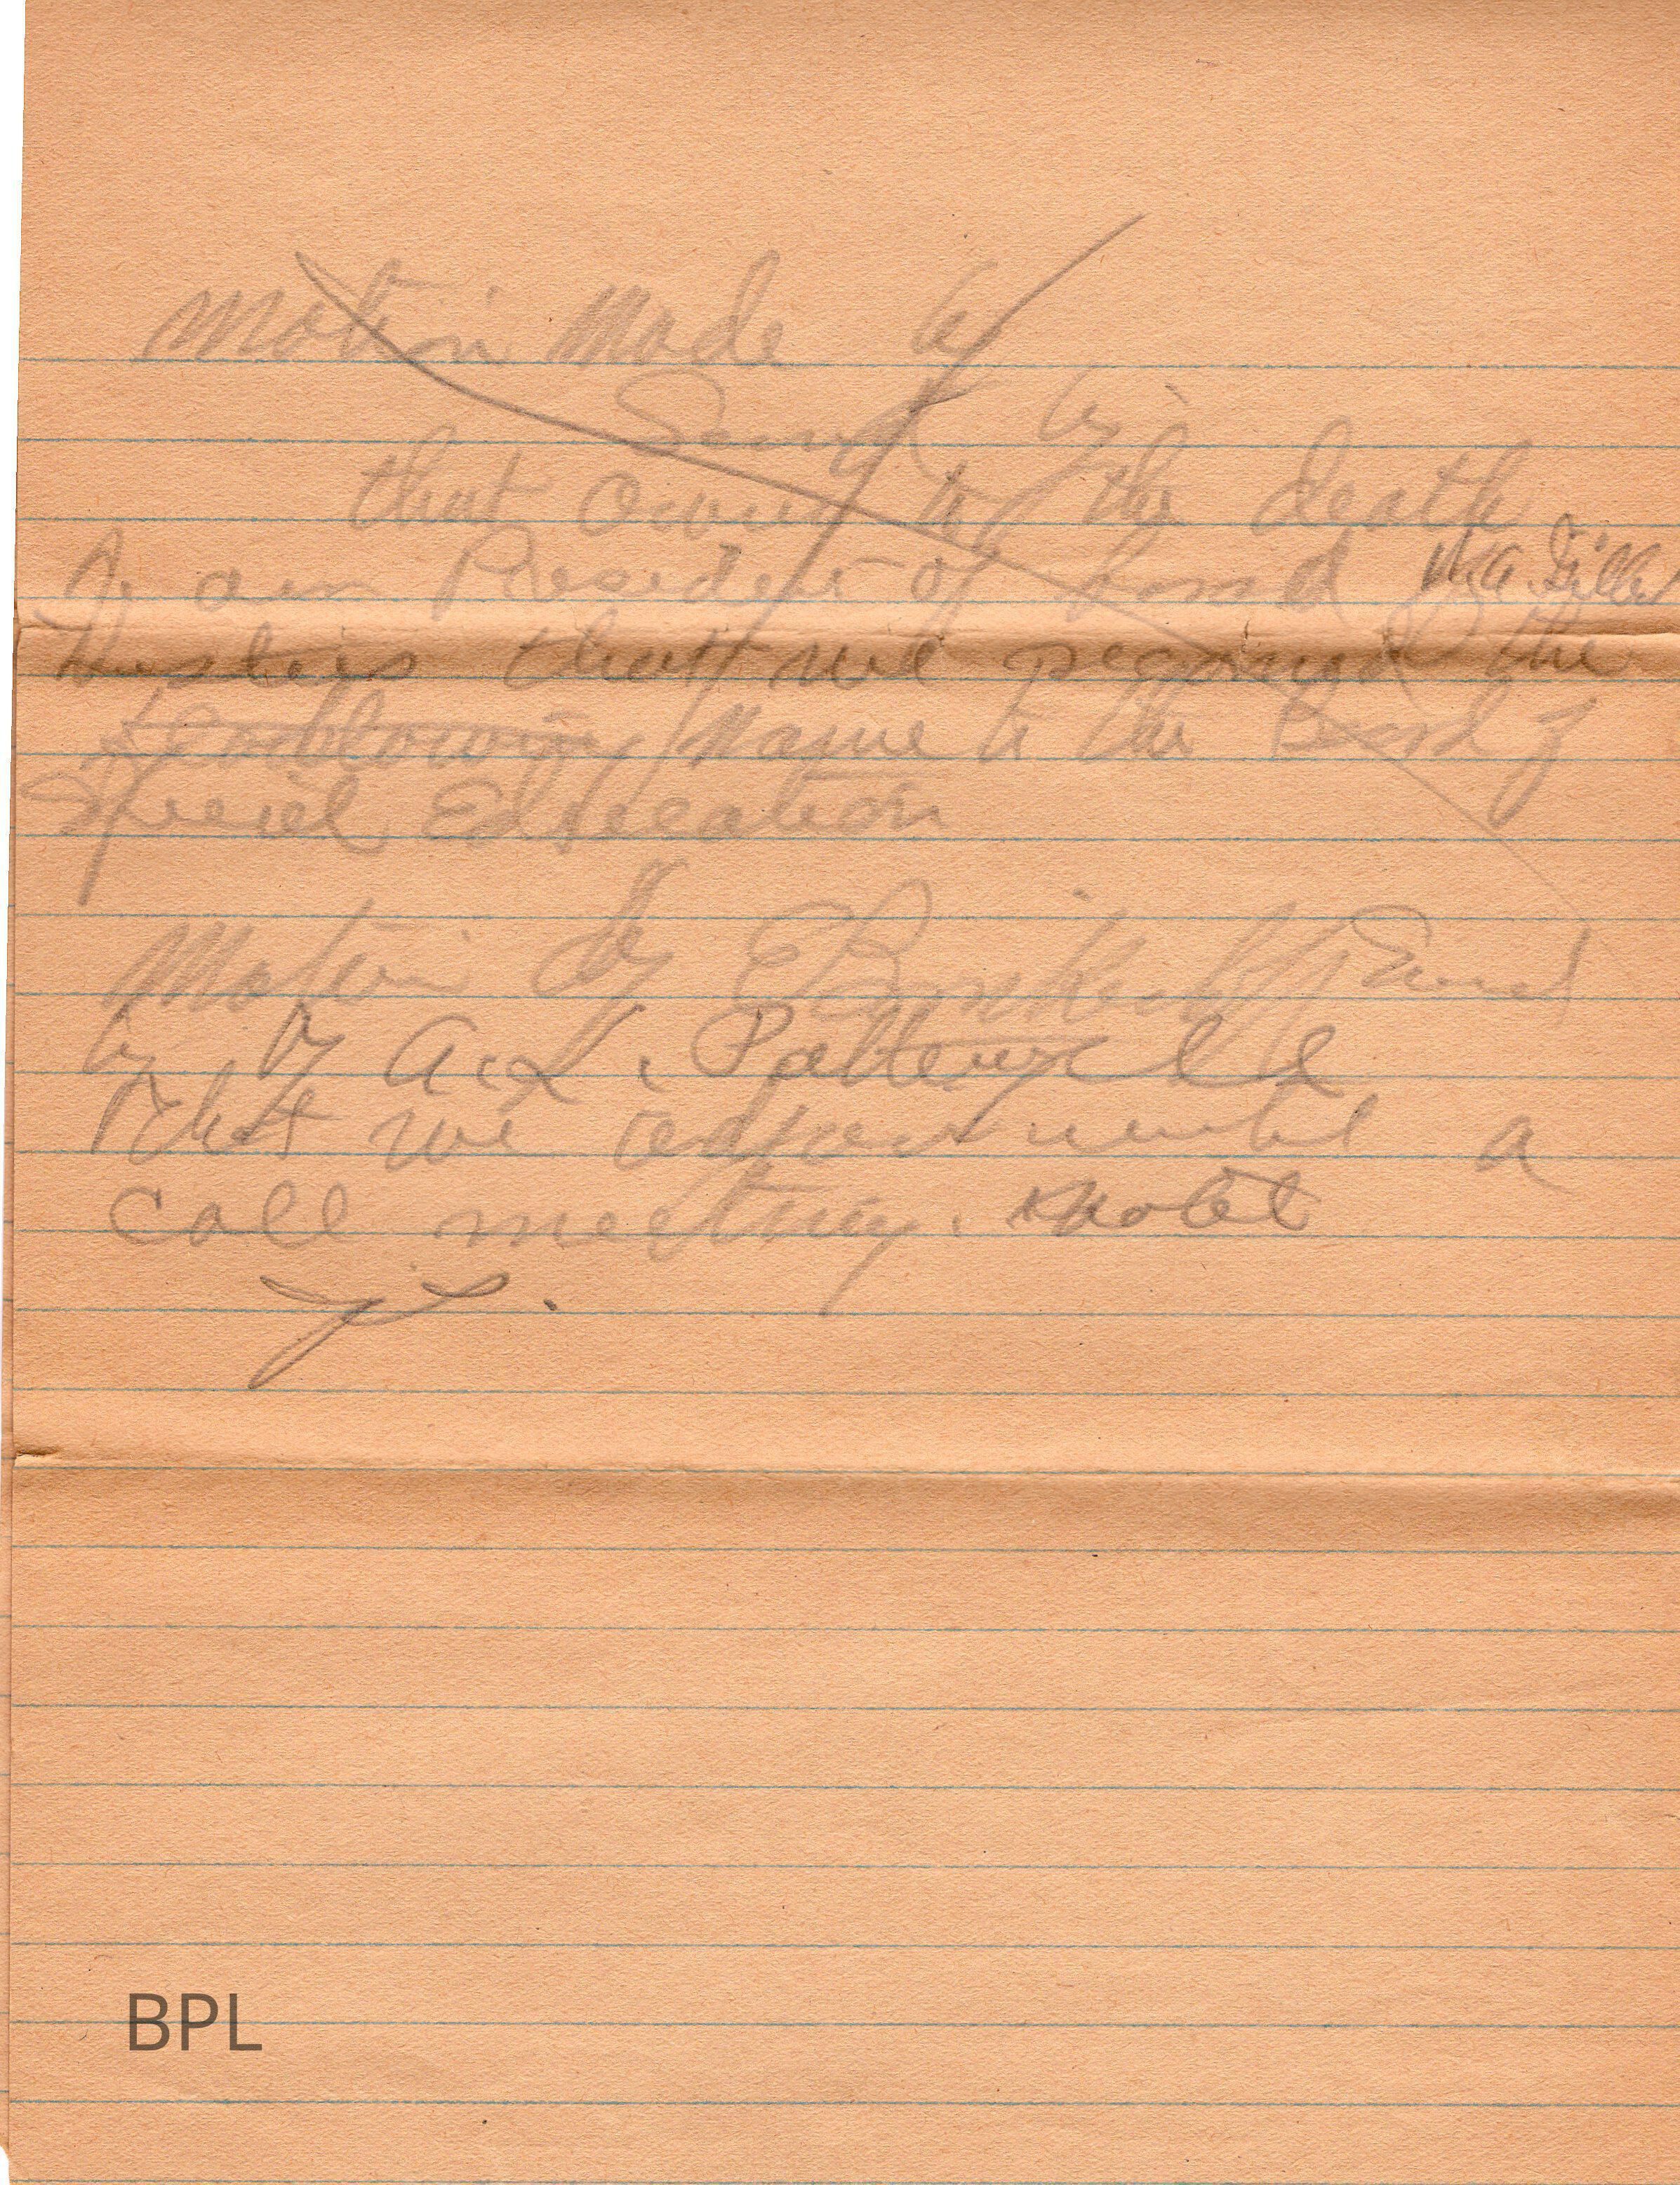 Motion Made by
Secend by
that owing to the death
of our President of board W.A. Fille
Trustees that we recomed the
foollowing Name to the Board of
Special Education
Motion by E Secend
by A.L. Patterzell
that we until a
call meeting.
BPL